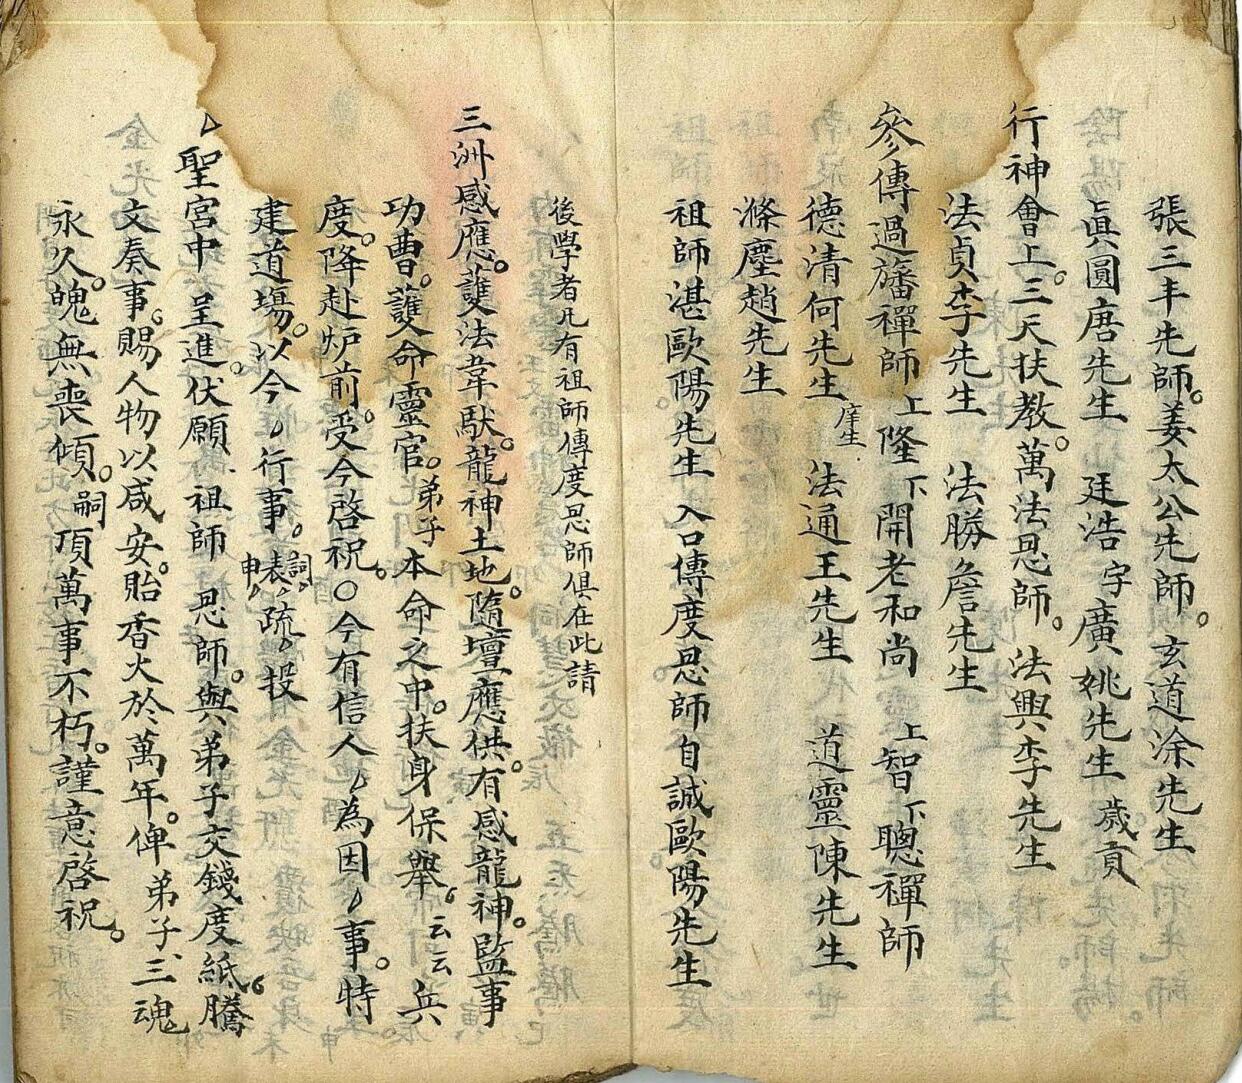 張三丰先師。姜太公先師。玄道涂先生
眞圓唐先生 廷浩字廣姚先生歲貢
行神會上。三天扶教。萬法恩師。法興李先生
法貞李先生 法勝詹先生
參傳過旛禪師上隆下開老和尚 上智下聰禪師
德清何先生庠生 法通王先生 道靈陳先生
滌塵趙先生
祖師湛歐陽先生入口傳度恩師自誠歐陽先生
後學者凡有祖師傳度恩師俱在此請
三洲感應。護法韋馱。龍神土地。隨壇應供。有感龍神。監事
功曹。護命靈官。弟子本命之中。扶身保舉。云云兵
度。降赴炉前。受今啓祝。○今有信人為因事。特
建道塲。以今行事。申表詞疏投
聖宮中 呈進。伏願 祖師 恩師。與弟子交錢度紙。騰
文奏事。賜人物以咸安。貽香火於萬年。俾弟子三魂
永久。魄無喪傾。嗣項萬事不朽。謹意啓祝。